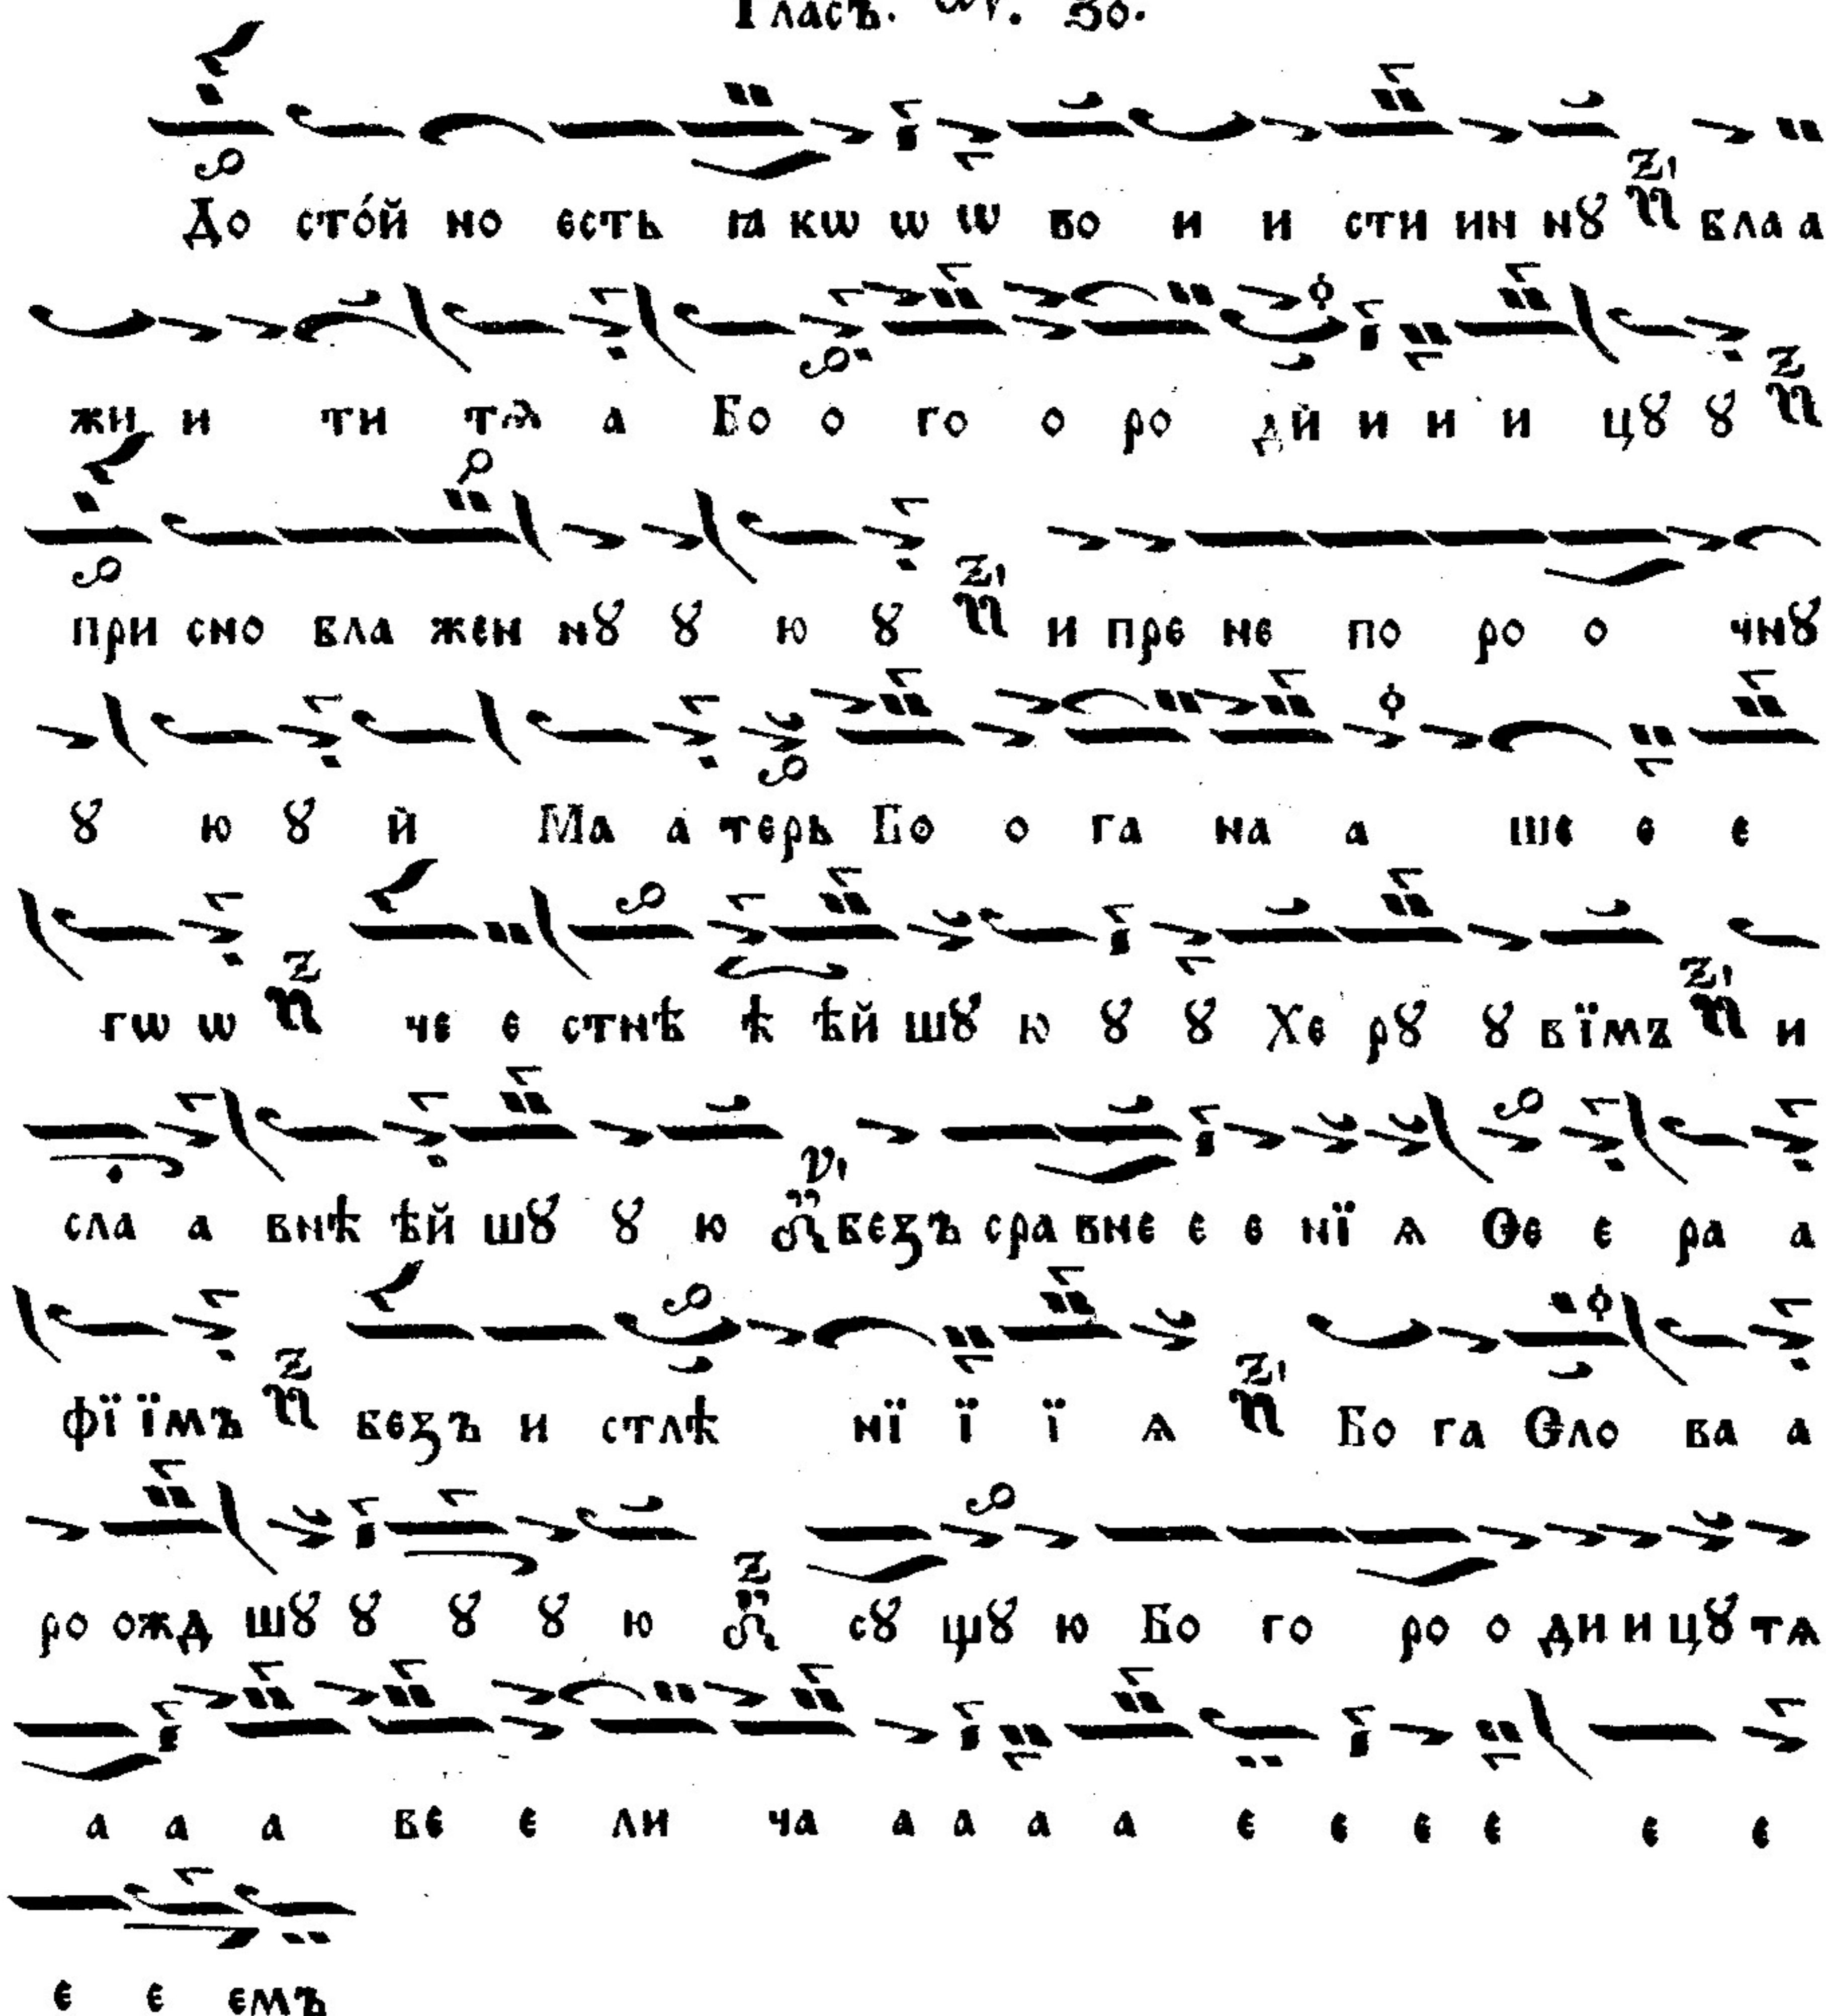 Гласъ.
До сто́й но єсть ꙗ кѡ ѡ ѡ во и и сти ин нꙋ бла а
жи и ти тѧ а Бо о го о ро дй и и и цꙋ ꙋ
при сно бла жен нꙋ ꙋ ю ꙋ и пре не по ро о чнꙋ
ꙋ ю ꙋ й Ма а терь Бо о га на а ше е є
гѡ ѡ че е стнѣ ѣ ѣй шꙋ ю ꙋ ꙋ Хе рꙋ ꙋ вїмъ и
сла а внѣ ѣй шꙋ ꙋ ю безъ сра вне є е нї ѧ Се є ра а
фї їмъ безъ и стлѣ нї ї ї ѧ Бо га Сло ва а
ро ожд шꙋ ꙋ ꙋ ꙋ ю сꙋ щꙋ ю Бо го ро о ди и цꙋ тѧ
а а а ве є ли ча а а а а є є є є є є
є є ємъ